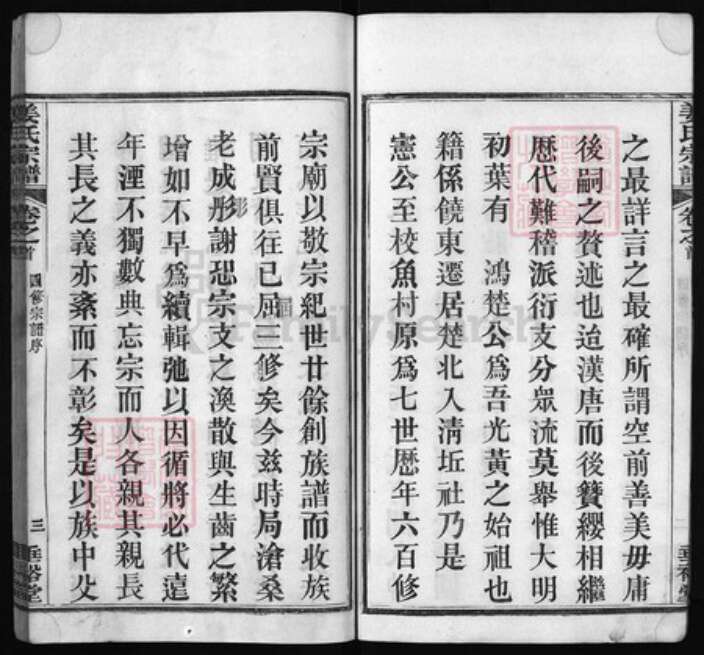 姜氏宗譜
卷之首
之最詳言之最確所謂空前善美毋庸
後嗣之贅述也迨漢唐而後簪纓相繼
歴代難稽派衍支分衆流莫舉惟大明
初葉有 鴻楚公為吾光黃之始祖也
籍係饒東遷居楚北入淸坵社乃是
憲公至校魚村原為七世歴年六百修
宗廟以敬宗紀世廿餘創族譜而收族
前賢俱往已屆三修矣今茲時局滄桑
老成彫謝恐宗支之渙散與生齒之繁
增如不早為續輯弛以因循將必代遠
年湮不獨數典忘宗而人各親其親長
其長之義亦紊而不彰矣是以族中父
姜氏宗譜
卷之首
四修宗譜序
三
垂裕堂
FamilySearch